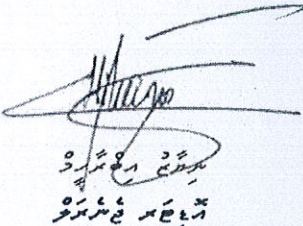 ނިޔާޒު އިބްރާހީމް
އޮޑިޓަރ ޖެނެރަލް